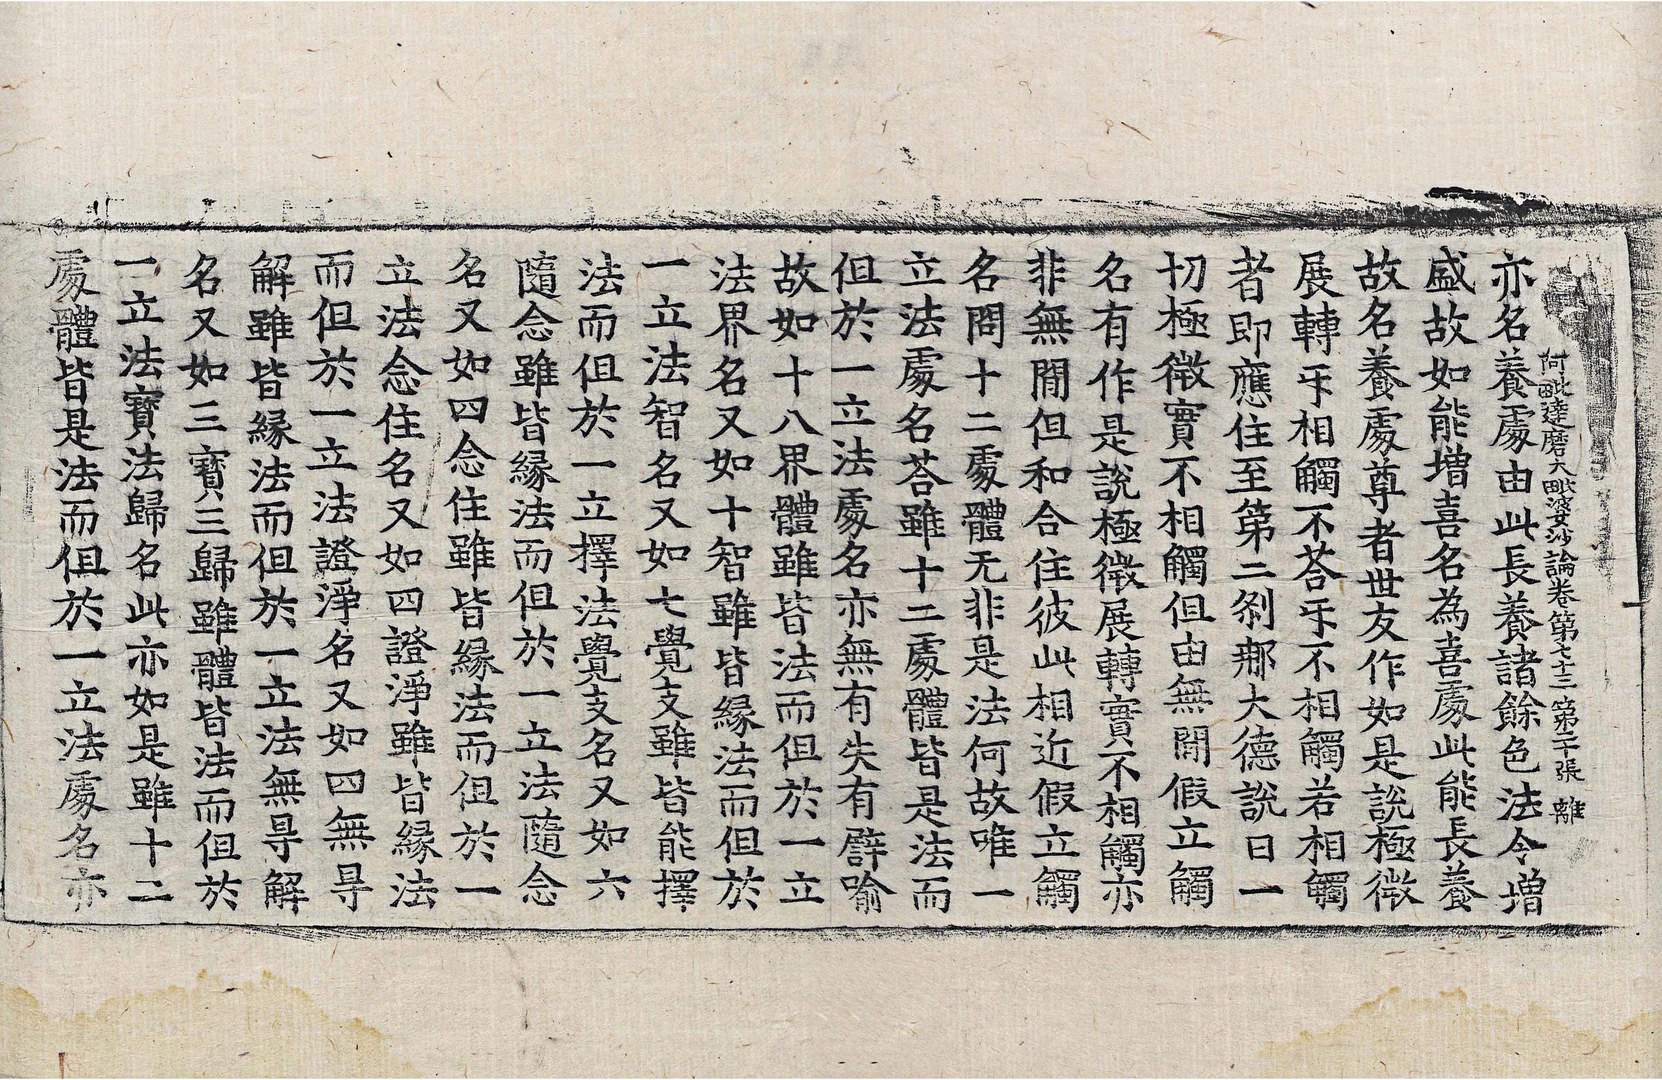 阿毗達磨大毗婆沙論卷第七十三　第二十張　離
亦名養處由此長養諸餘色法令增
盛故如能增喜名為喜處此能長養
故名養處尊者世友作如是說極微
展轉㸦相觸不荅㸦不相觸若相觸
者即應住至第二剎那大德說曰一
切極微實不相觸但由無間假立觸
名有作是說極微展轉實不相觸亦
非無間但和合住彼此相近假立觸
名問十二處體无非是法何故唯一
立法處名荅雖十二處體皆是法而
但於一立法處名亦無有失有譬喻
故如十八界體雖皆法而但於一立
法界名又如十智雖皆緣法而但於
一立法智名又如七覺支雖皆能擇
法而但於一立擇法覺支名又如六
隨念雖皆緣法而但於一立法隨念
名又如四念住雖皆緣法而但於一
立法念住名又如四證淨雖皆緣法
而但於一立法證淨名又如四無㝵
解雖皆緣法而但於一立法無㝵解
名又如三寶三歸雖體皆法而但於
一立法寶法歸名此亦如是雖十二
處體皆是法而但於一立法處名亦